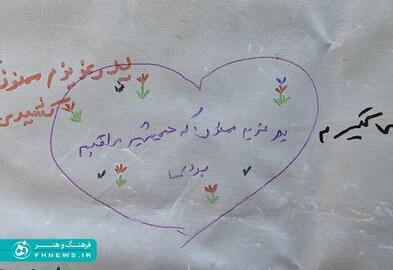 پدر عزیزم ممنون
کشیدی
پدر عزیزم ممنون که همیشه مراقبم
فرهنگ و هنر
FHNEWS.IR